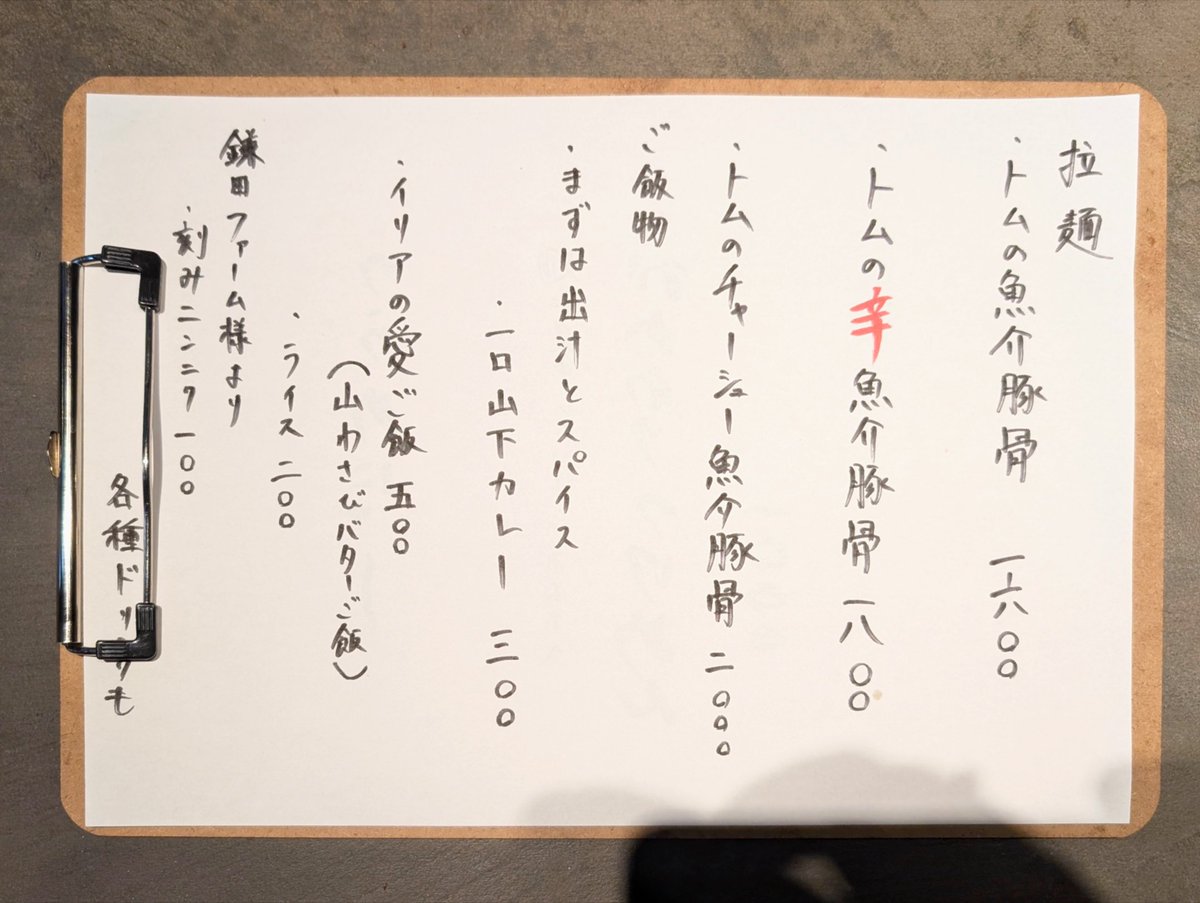 拉麺
・トムの魚介豚骨 一六〇〇
・トムの辛魚介豚骨 一八〇〇
・トムのチャーシュー魚介豚骨 二〇〇〇
ご飯物
・まずは出汁とスパイス
・一口山下カレー 三〇〇
・イリアの愛ご飯 五〇〇
(山わさびバターご飯)
・ライス 二〇〇
鎌田ファーム様より
・刻みニンニク 一〇〇
各種ドリンクも